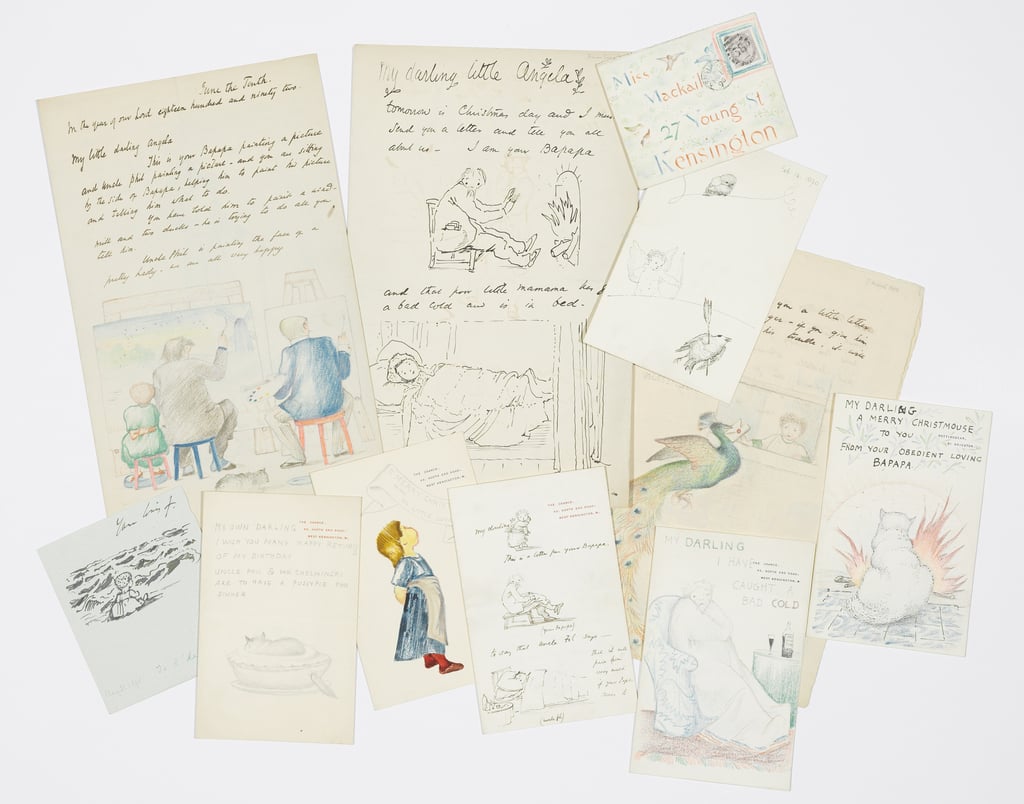 June the Tenth.
In the year of our Lord eighteen hundred and ninety two.
My little darling Angela
This is your Bapapa painting a picture
and Uncle Phil painting a picture - and you are sitting
by the side of Bapapa, helping him to paint his picture
and telling him what to do.
You have told him to paint a wind-
mill and two ducks - he is trying to do all you
tell him.
Uncle Phil is painting the face of a
pretty lady. we are all very happy
My darling little Angela
tomorrow is Christmas day and I must
send you a letter and tell you all
about us - I am your Bapapa
and that poor little mamama has
a bad cold and is in bed.
Miss
Mackail
27 Young St
Kensington
you a little letter
if you give him
his trouble. I will
MY DARLING
A MERRY CHRISTMOUSE
TO YOU
ROTTINGDEAN,
NR. BRIGHTON.
FROM YOUR OBEDIENT LOVING
BAPAPA
MY OWN DARLING
THE GRANGE,
49, NORTH END ROAD,
WEST KENSINGTON, W.
I WISH YOU MANY HAPPY RETURNS
OF MY BIRTHDAY
UNCLE PHIL &
ARE TO HAVE A PUSSYPIE FOR
DINNER
THE GRANGE,
49, NORTH END ROAD,
WEST KENSINGTON, W.
THE GRANGE,
49, NORTH END ROAD,
WEST KENSINGTON, W.
My darling
This is a letter for your Bapapa,
(your Bapapa)
to say that Uncle Phil says
(uncle phil)
MY DARLING
I HAVE
THE GRANGE,
49, NORTH END ROAD,
WEST KENSINGTON, W.
CAUGHT A
BAD COLD